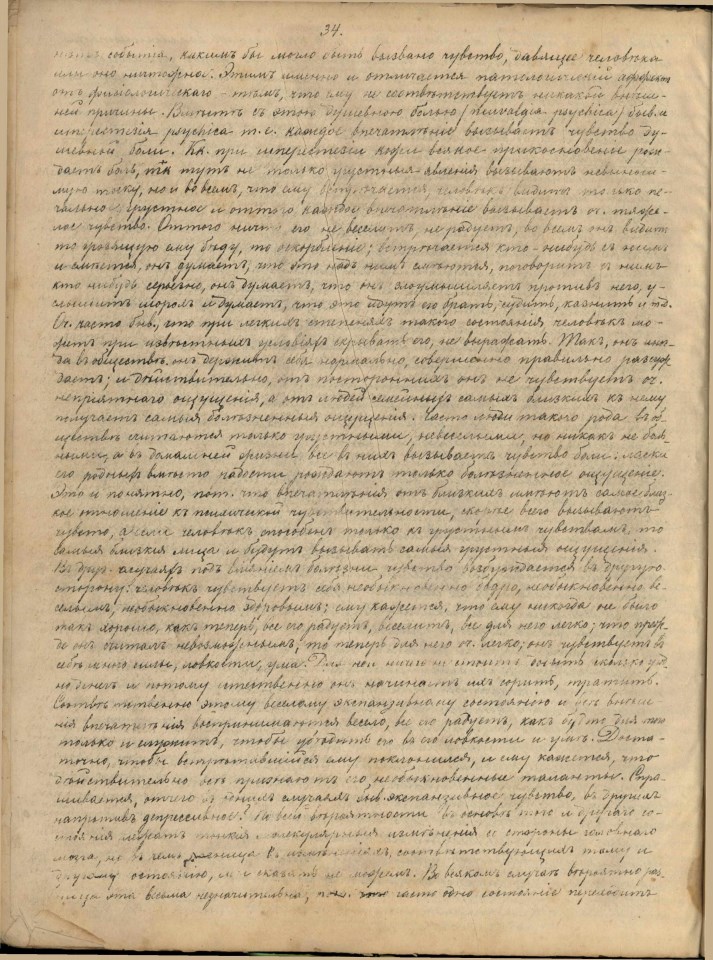 34.
событія, какимъ бы могло быть вызвано чувство, давящее человѣка
или оно ничтожно. Этимъ именно и отличается патологическій аффектъ
отъ физіологическаго – тѣмъ, что ему не соотвѣтствуетъ никакой внѣш-
ней причины. Вмѣстѣ съ этою душевною болью (neuralgia psychica) быв.
psychica т. е. каждое впечатлѣніе вызываетъ чувство ду-
шевной боли. Кк. при гиперестезіи кожи всякое прикосновеніе рож-
даетъ боль, тк тутъ не только грустныя явленія вызываютъ невыноси-
мую тоску, но и во всемъ, что ему встрѣчается, человѣкъ видитъ только пе-
чальное грустное и оттого каждое впечатлѣніе вызываетъ оч. тяже-
лое чувство. Оттого ничто его не веселитъ, не радуетъ; во всемъ онъ видитъ
то грозящую ему бѣду, то оскорбленіе; встрѣчается кто-нибудь съ нимъ
и смѣется, онъ думаетъ, что это надъ нимъ смѣются, поговоритъ съ нимъ
кто нибудь серьезно, онъ думаетъ, что онъ злоумышляетъ противъ него, у-
слышитъ шорохъ и думаетъ, что это идутъ его брать, судить, казнить и тд.
Оч. часто быв., что при легкихъ степеняхъ такого состоянія, человѣкъ мо-
жетъ при извѣстныхъ условіяхъ скрывать его, не выражать. Такъ, онъ ког-
да въ обществѣ онъ держитъ себя нормально, совершенно правильно разсуж-
даетъ; и дѣйствительно, отъ постороннихъ онъ не чувствуетъ оч.
непріятнаго ощущенія, а отъ людей семейныхъ самыхъ близкихъ къ нему
получаетъ самыя болѣзненныя ощущенія. Часто люди такого рода въ об-
ществѣ считаются только грустными, невеселыми, но никакъ не боль-
ными, а въ домашней жизни все въ нихъ вызываетъ чувство боли: ласки
его родныхъ вмѣсто радости рождаютъ только болѣзненное ощущеніе.
Это и понятно, пот. что впечатлѣнія отъ близкихъ имѣютъ самое близ-
кое отношеніе къ психической чувствительности, скорѣе всего вызываютъ
чувство, а если человѣкъ способенъ только къ грустнымъ чувствамъ, то
самыя близкія лица и будутъ вызывать самыя грустныя ощущенія.
Въ друг. случаяхъ подъ вліяніемъ болѣзни чувство возбуждается въ другую
сторону: человѣкъ чувствуетъ себя необыкновенно бодро, необыкновенно ве-
селымъ, необыкновенно здоровымъ; ему кажется, что ему никогда не было
такъ хорошо, какъ теперь, все его радуетъ, веселитъ, все для него легко; что преж-
де онъ считалъ невозможнымъ, то теперь для него оч. легко; онъ чувствуетъ въ
себѣ много силы, ловкости, ума. Для него ничего не стоитъ добыть сколько уг.
но денегъ и потому естественно онъ начинаетъ ихъ сорить, тратить.
Соотвѣтственно этому веселому экспансивному состоянію и всѣ внѣш-
нія впечатлѣнія воспринимаются весело, все его радуетъ, какъ будто для того
только и служитъ, чтобы убѣдить его въ его ловкости и умѣ. Доста-
точно, чтобы встрѣтившійся ему поклонился, и ему кажется, что
дѣйствительно всѣ признаютъ его необыкновенные таланты. Спра-
шивается, отчего въ однихъ случаяхъ быв. экспансивное чувство, въ другихъ
напротивъ депрессивное? По всей вѣроятности въ основѣ того и другаго со-
стоянія лежатъ тонкія молекулярныя измѣненія со стороны головнаго
мозга, но въ чемъ разница въ измѣненіяхъ, соотвѣтствующихъ тому и
другому состоянію, мы сказать не можемъ. Во всякомъ случаѣ вѣроятно раз-
ница эта весьма незначительна, пот. что часто одно состояніе переходитъ